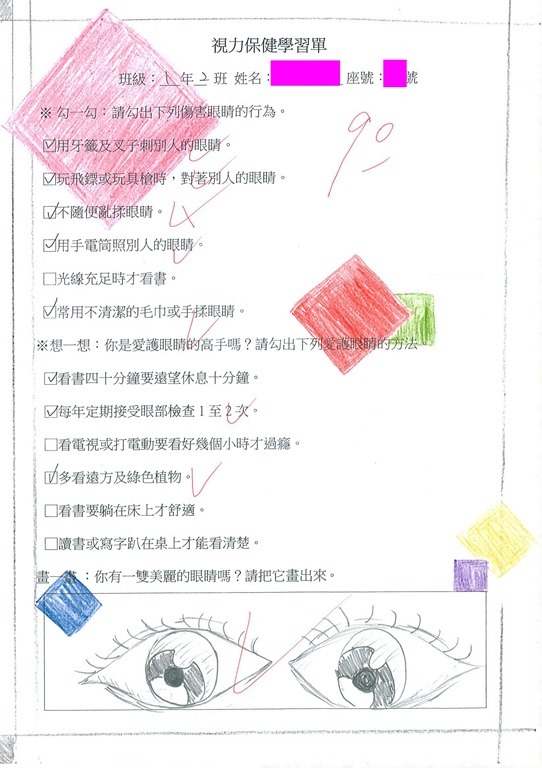 視力保健學習單
班級：1年2班 姓名： 座號： 號
※ 勾一勾：請勾出下列傷害眼睛的行為。
☑用牙籤及叉子刺別人的眼睛。
☑玩飛鏢或玩具槍時，對著別人的眼睛。
☑不隨便亂揉眼睛。
☑用手電筒照別人的眼睛。
□光線充足時才看書。
☑常用不清潔的毛巾或手揉眼睛。
90
※想一想：你是愛護眼睛的高手嗎？請勾出下列愛護眼睛的方法
☑看書四十分鐘要遠望休息十分鐘。
☑每年定期接受眼部檢查1至2次。
□看電視或打電動要看好幾個小時才過癮。
☑多看遠方及綠色植物。
□看書要躺在床上才舒適。
□讀書或寫字趴在桌上才能看清楚。
畫一畫：你有一雙美麗的眼睛嗎？請把它畫出來。